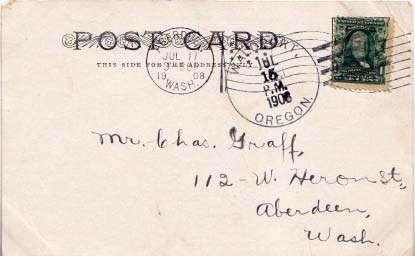 POST CARD
THIS SIDE FOR THE ADDRESS
JUL 17
1908
WASH.
JUL
16
P.M.
1908
OREGON.
Mr. Chas. Graff,
112 - W. Heron St,
Aberdeen,
Wash.